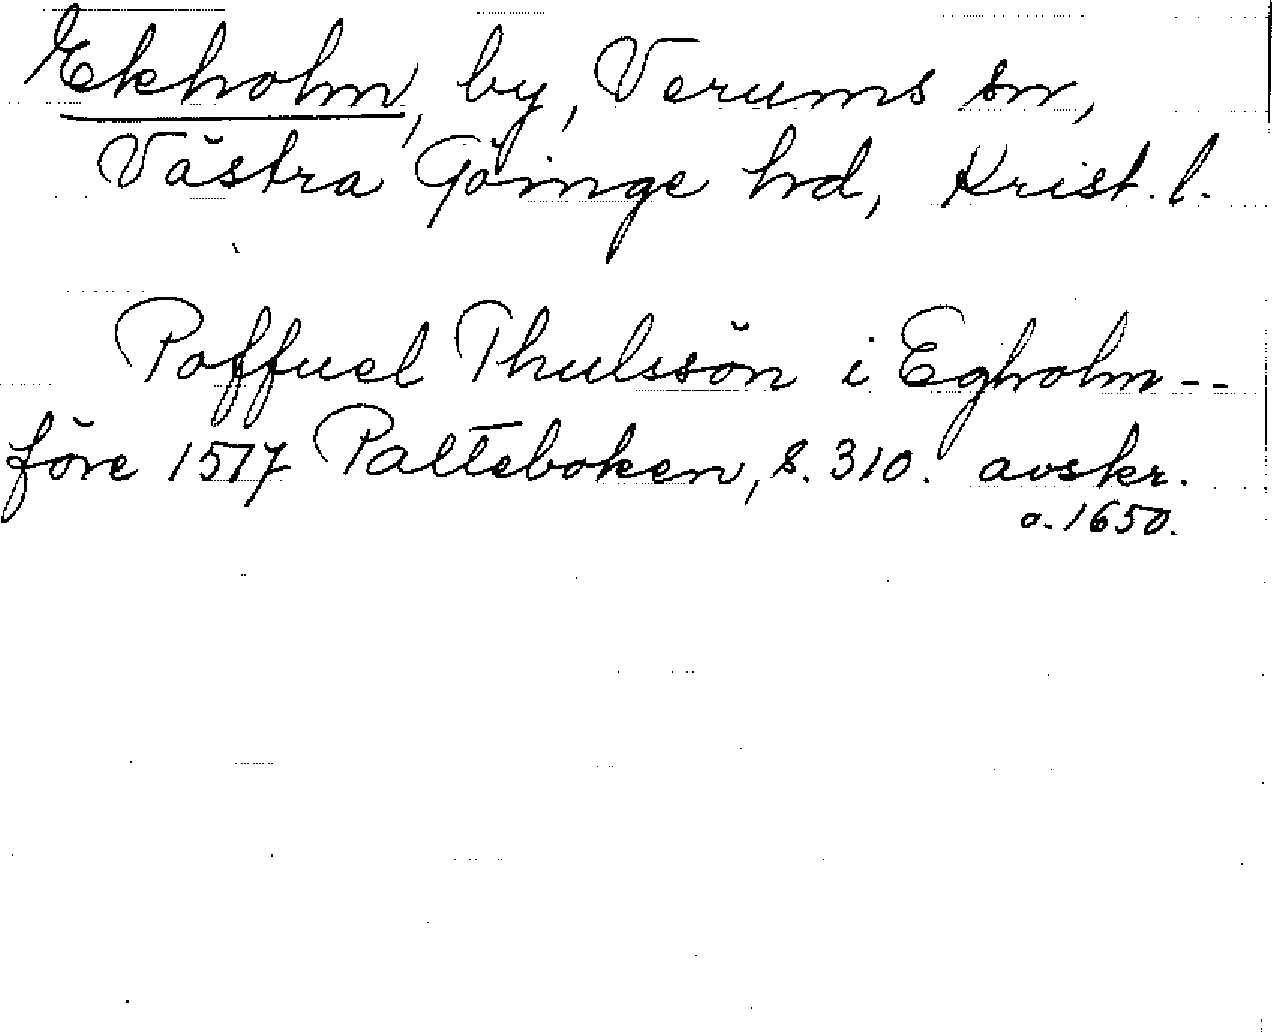 Ekholm, by, Verums sn,
Västra Göinge hd, Krist. l.
Poffuel Thulssön i Egholm--
före 1517 Palteboken, s. 310. avskr.
o. 1650.